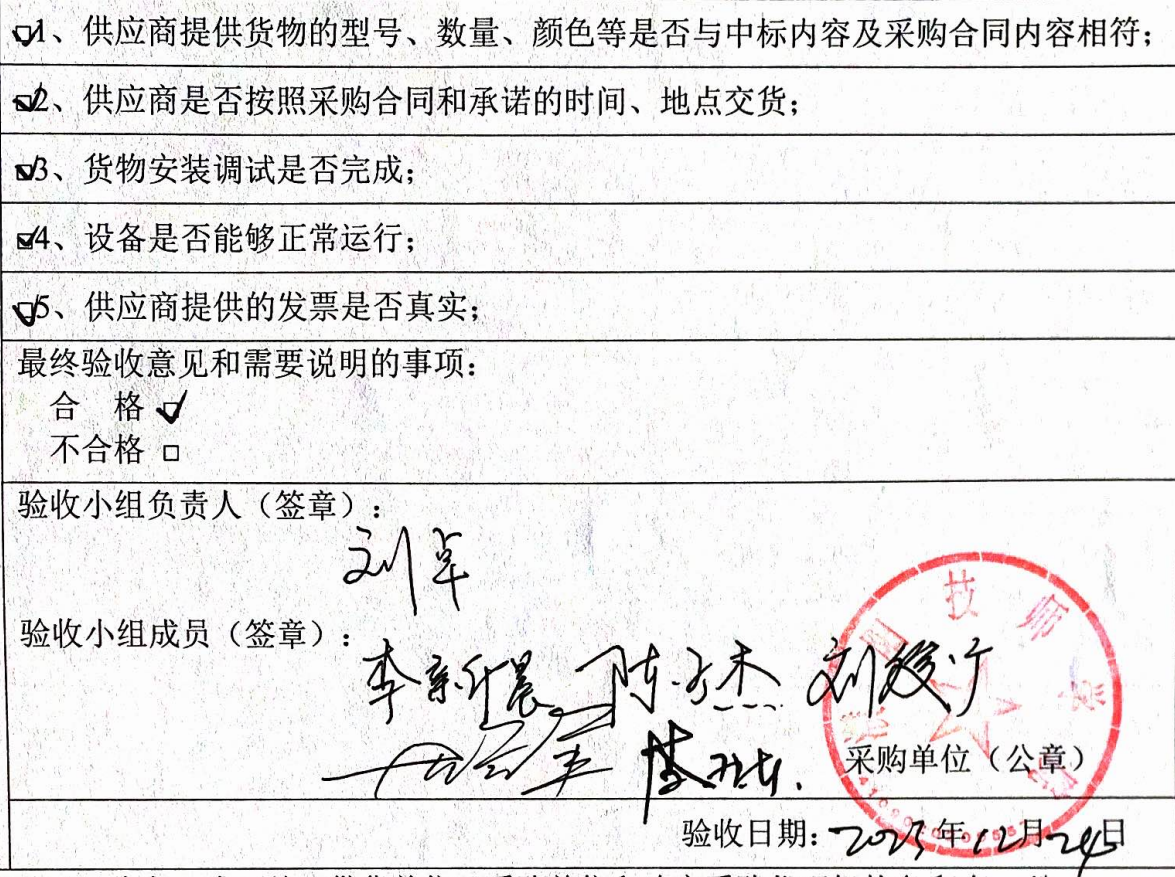 ☑1、供应商提供货物的型号、数量、颜色等是否与中标内容及采购合同内容相符；
☑2、供应商是否按照采购合同和承诺的时间、地点交货；
☑3、货物安装调试是否完成；
☑4、设备是否能够正常运行；
☑5、供应商提供的发票是否真实；
最终验收意见和需要说明的事项：
合　格 ☑
不合格 □
验收小组负责人（签章）：
刘卓
验收小组成员（签章）：
技师
采购单位（公章）
验收日期：2025年12月24日